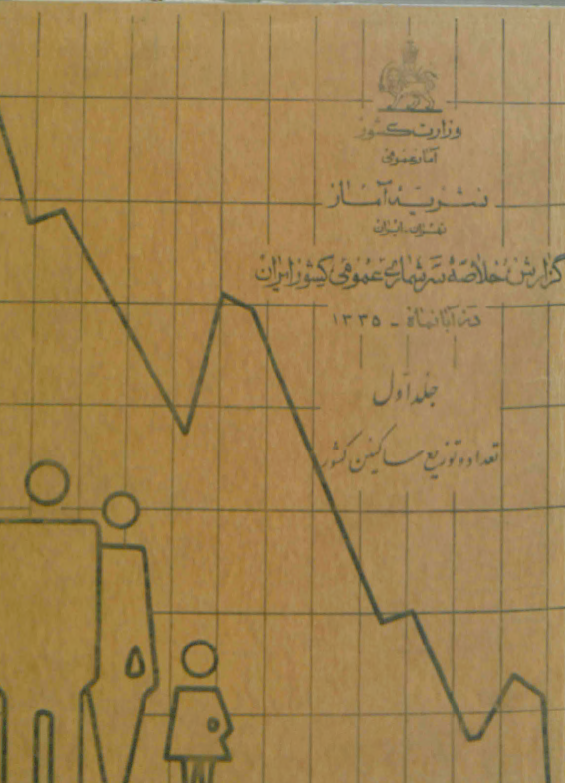 وزارت کشور
آمار عمومی
نشریهٔ آمار
تهران - ایران
گزارش خلاصهٔ سرشماری عمومی کشور ایران
در آبانماه - ۱۳۳۵
جلد اول
تعداد و توزیع ساکنین کشور